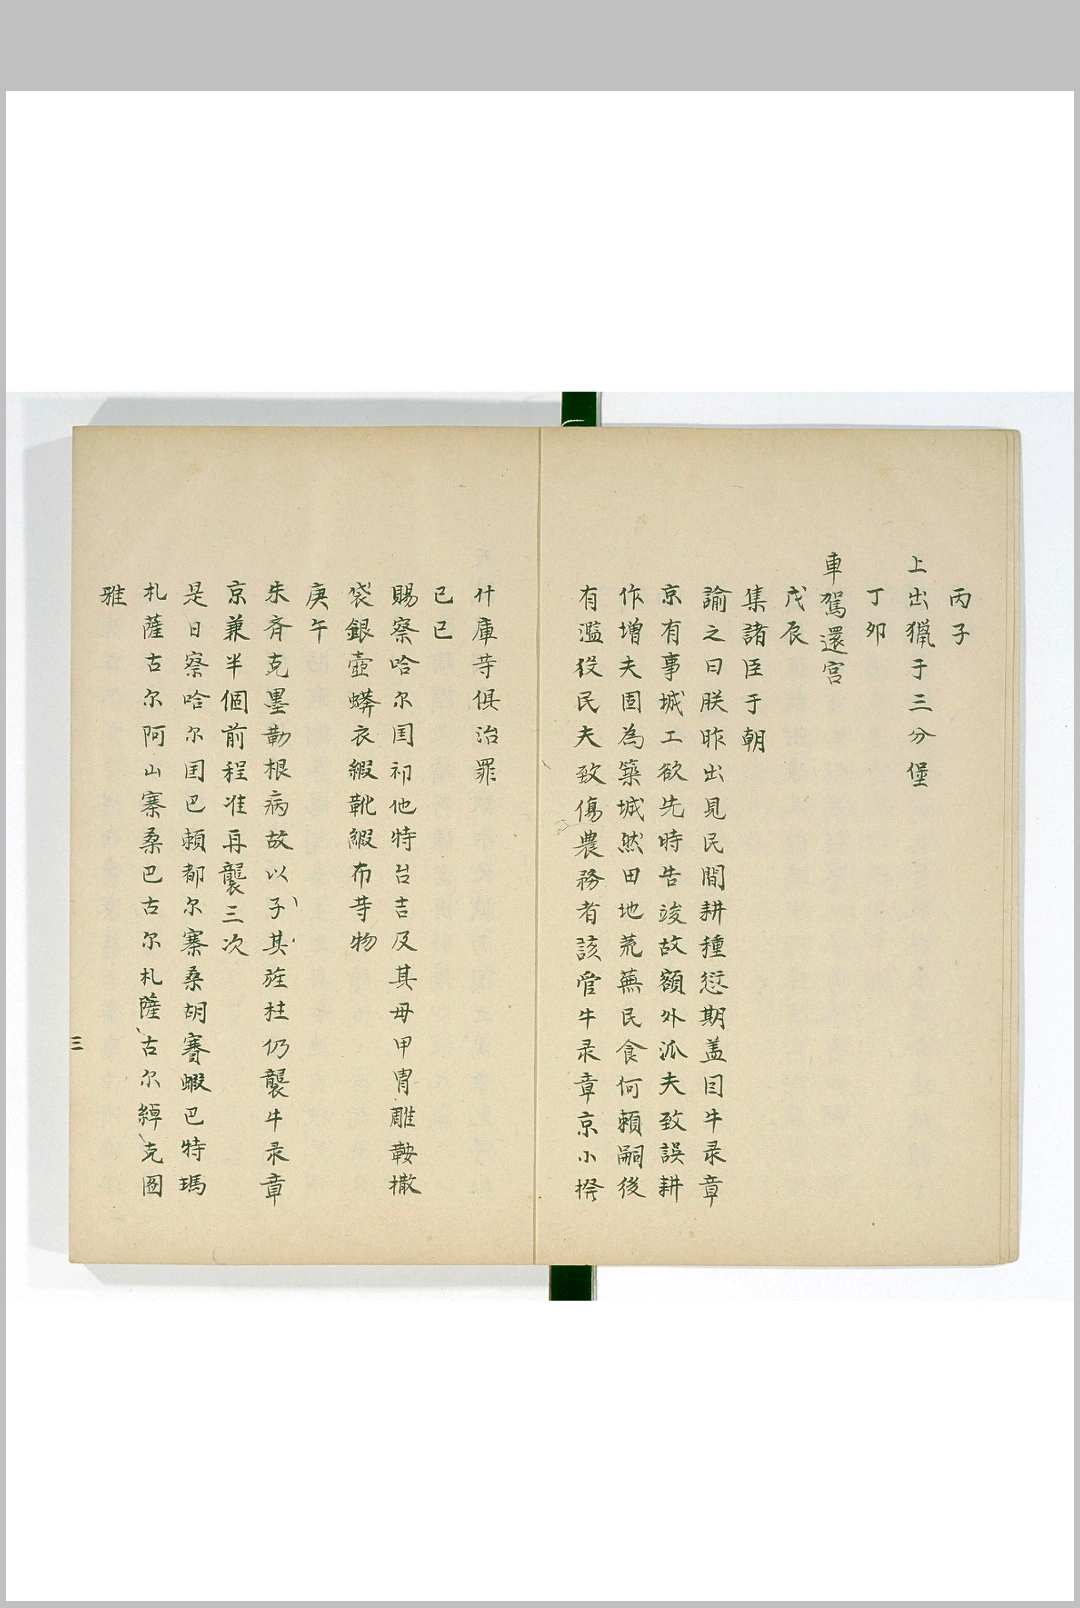 丙子
上出獵于三分堡
丁夘
車駕還宮
戊辰
集諸臣于朝
諭之曰朕昨出見民間耕種愆期盖因牛录章
京有事城工欲先時告竣故額外派夫致誤耕
作增夫固為築城然田地荒蕪民食何賴嗣後
有濫役民夫致傷農務者該管牛录章京小撥
什庫䓁俱治罪
己巳
賜察哈尔国祁他特台吉及其母甲冑雕鞍撒
袋銀壺蟒衣緞靴緞布䓁物
庚午
朱齐克墨勒根病故以子其旌柱仍襲牛录章
京兼半個前程准再襲三次
是日察哈尔国巴頼都尔寨桑胡賽蝦巴特瑪
札薩古尔阿山寨桑巴古尔札薩古尔綽克圖
雅
三